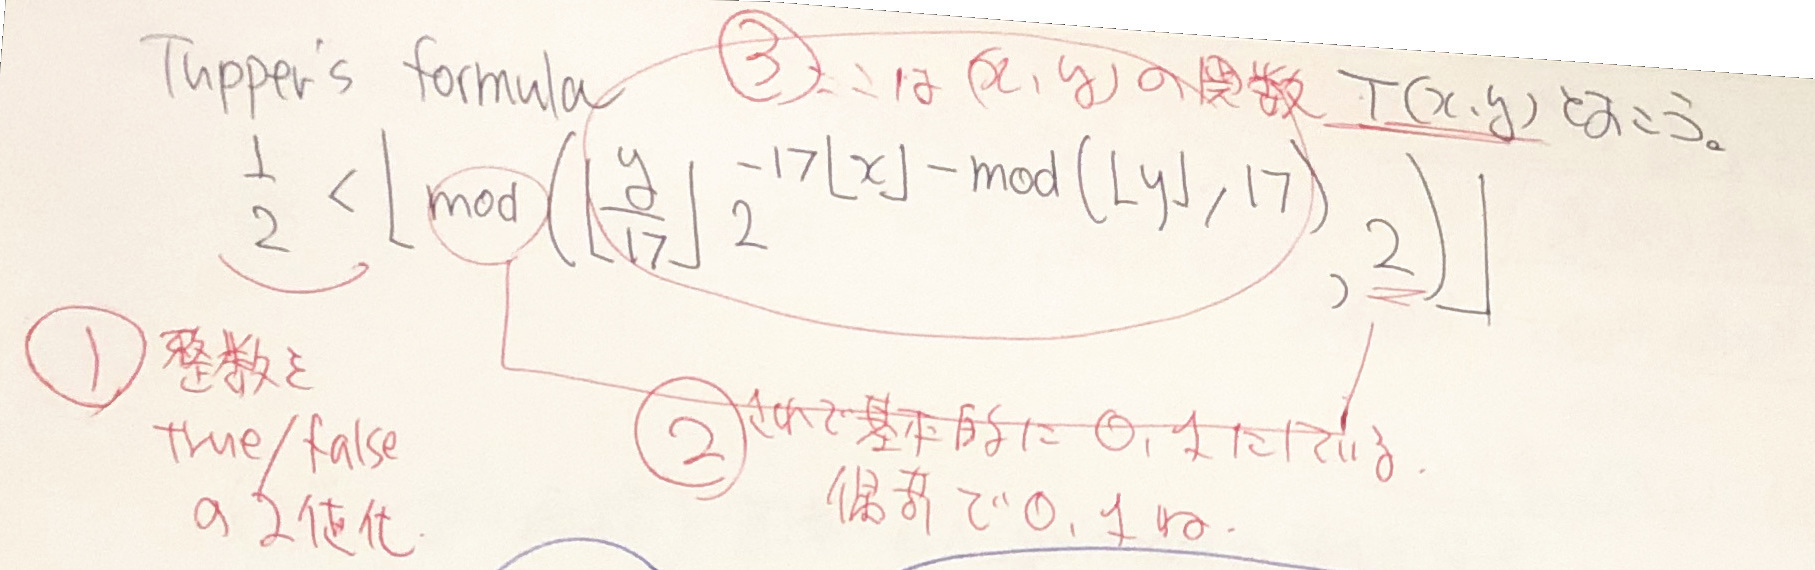 Tupper's formula
③ ここは (x, y) の関数 T(x, y) とおこう。
1/2 < ⌊ mod ( ⌊ y/17 ⌋ 2^{-17⌊x⌋ - mod(⌊y⌋, 17)}, 2 ) ⌋
① 整数を
true/false
の2値化.
② これで基本的に 0, 1 にしている.
偶奇で 0, 1 ね.